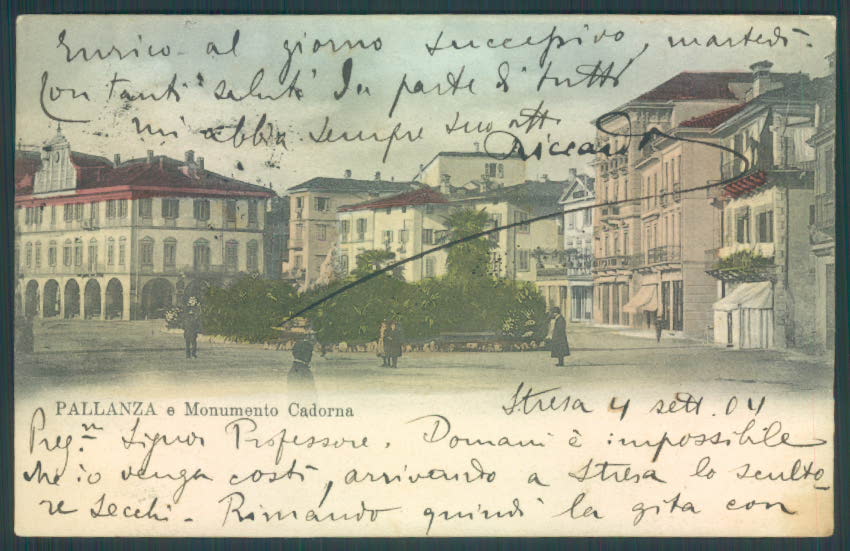 Enrico al giorno successivo, martedì.
Con tanti saluti da parte di tutti
mi abbia sempre suo
Riccardo
PALLANZA e Monumento Cadorna
Stresa 4 sett. 04
Preg.mo Signor Professore. Domani è impossibile
che io venga costì, arrivando a Stresa lo sculto-
re Secchi. Rimando quindi la gita con